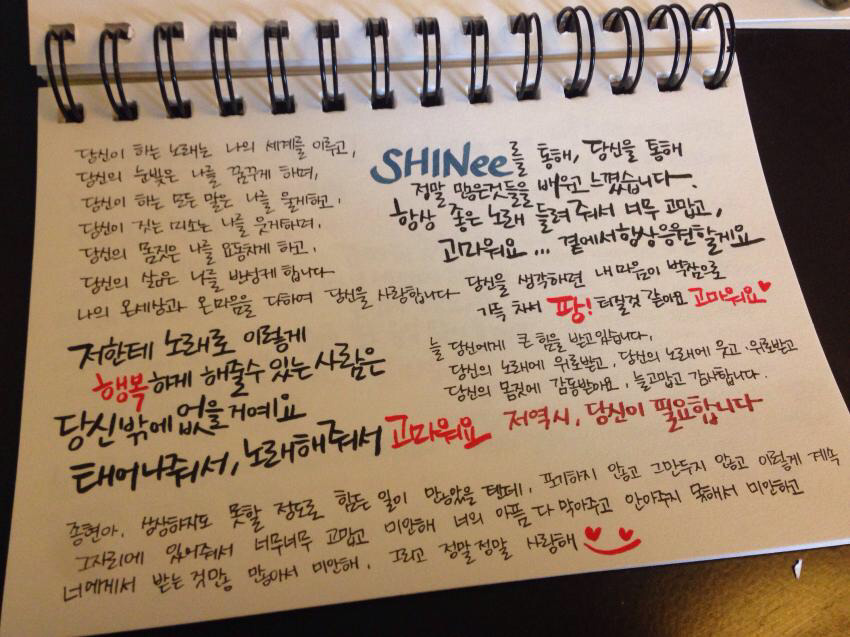 당신이 하는 노래는 나의 세계를 이루고,
당신의 눈빛은 나를 꿈꾸게 하며,
당신이 하는 모든 말은 나를 울게하고,
당신이 짓는 미소는 나를 웃게하며,
당신의 몸짓은 나를 요동치게 하고,
당신의 삶은 나를 반성케 합니다
나의 온세상과 온마음을 다하여 당신을 사랑합니다
SHINee를 통해, 당신을 통해
정말 많은것들을 배우고 느꼈습니다.
항상 좋은 노래 들려줘서 너무 고맙고,
고마워요... 곁에서 항상응원할게요
당신을 생각하면 내 마음이 벅참으로
가득 차서 팡! 터질것 같아요 고마워요
저한테 노래로 이렇게
행복하게 해줄수 있는 사람은
당신밖에 없을거예요
태어나줘서, 노래해줘서 고마워요
늘 당신에게 큰 힘을 받고있습니다,
당신의 노래에 위로받고, 당신의 노래에 웃고·위로받고
당신의 몸짓에 감동받아요, 늘고맙고 감사합니다.
저역시, 당신이 필요합니다
종현아, 상상하지도 못할 정도로 힘든 일이 많았을 텐데, 포기하지 않고 그만두지 않고 이렇게 계속
그자리에 있어줘서 너무너무 고맙고 미안해 너의 아픔 다 막아주고 안아주지 못해서 미안하고
너에게서 받는 것만 많아서 미안해, 그리고 정말정말 사랑해